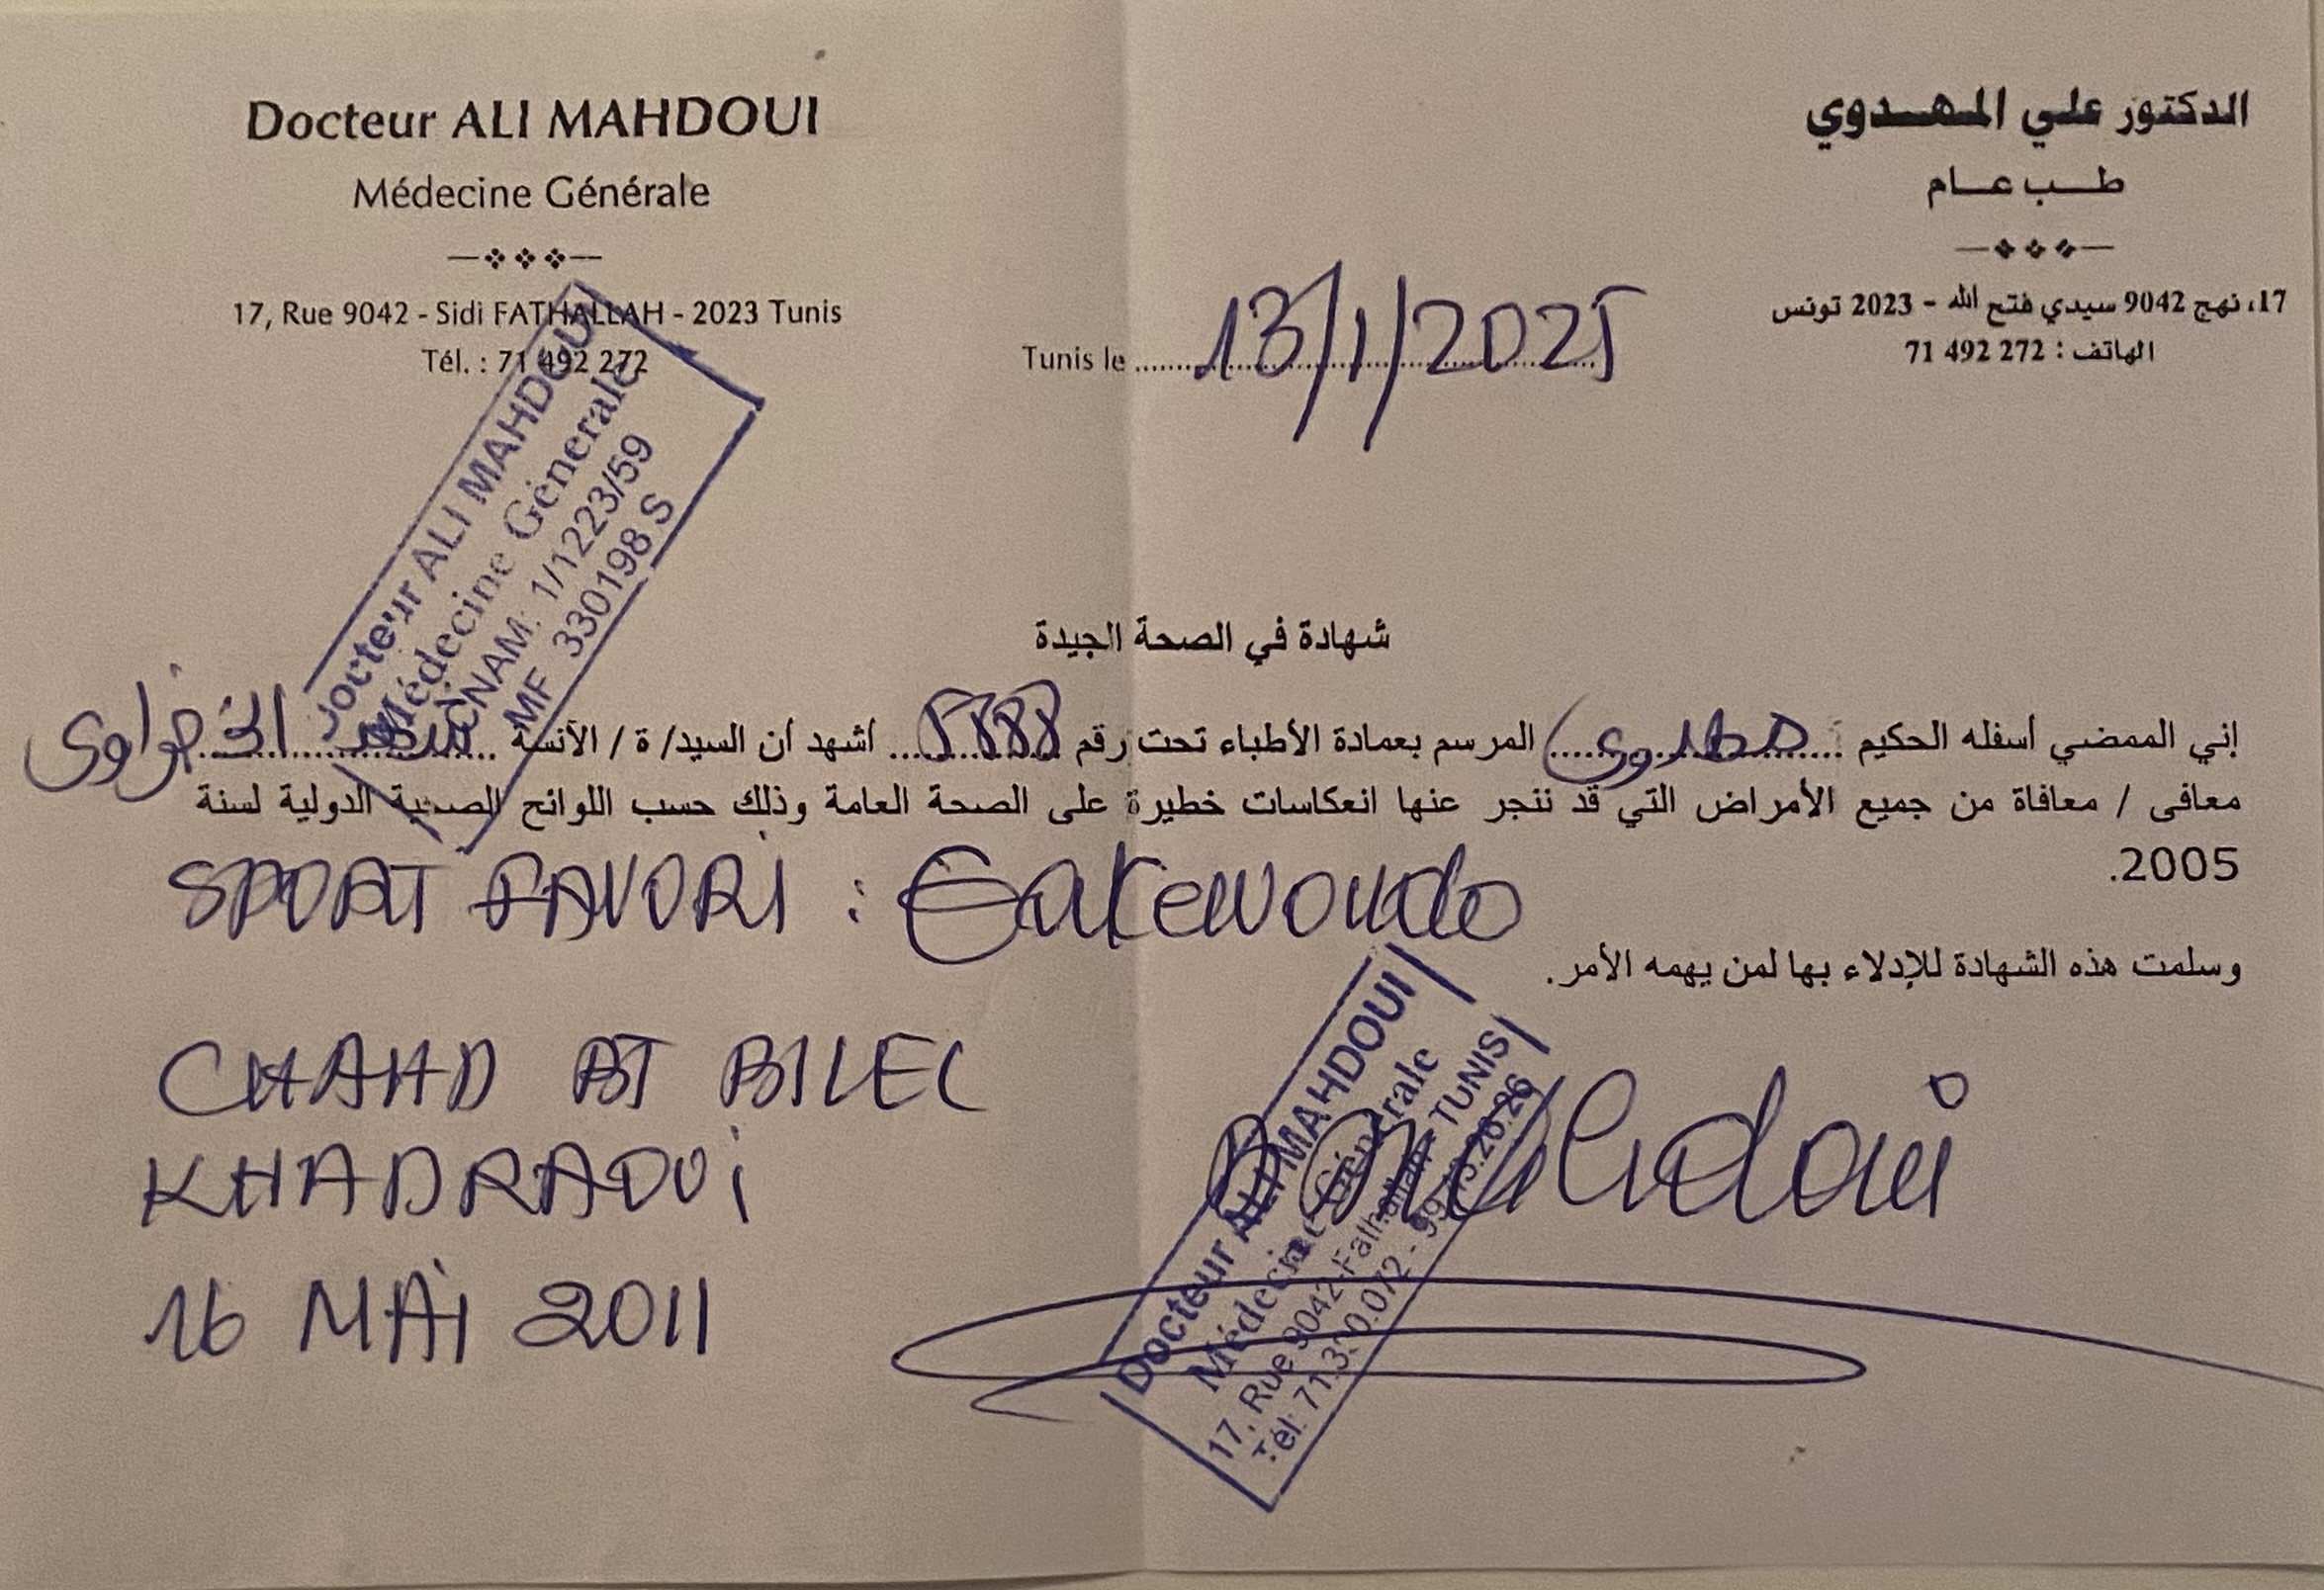 Docteur ALI MAHDOUI
Médecine Générale
17, Rue 9042 - Sidi FATHALLAH - 2023 Tunis
Tél. : 71 492 272
الدكتور علي المهدوي
طب عام
17، نهج 9042 سيدي فتح الله - 2023 تونس
الهاتف : 272 492 71
Tunis le 13/1/2025
Docteur ALI MAHDOUI
Médecine Génerale
CNAM: 1/1223/59
MF 330198 S
شهادة في الصحة الجيدة
إني الممضي أسفله الحكيم مهدوي المرسم بعمادة الأطباء تحت رقم أشهد أن السيد/ ة / الآنسة الخضراوي
معافى / معافاة من جميع الأمراض التي قد تنجر عنها انعكاسات خطيرة على الصحة العامة وذلك حسب اللوائح الصحية الدولية لسنة
2005.
SPORT FAVORI : Taekwondo
وسلمت هذه الشهادة للإدلاء بها لمن يهمه الأمر.
CHAHD BT BILEL
KHADRAOUI
16 MAI 2011
Docteur ALI MAHDOUI
Médecine Générale
17, Rue 9042-Fathallah - TUNIS
Tél: 71.390.072 - 99.43.26.26
Mahdoui